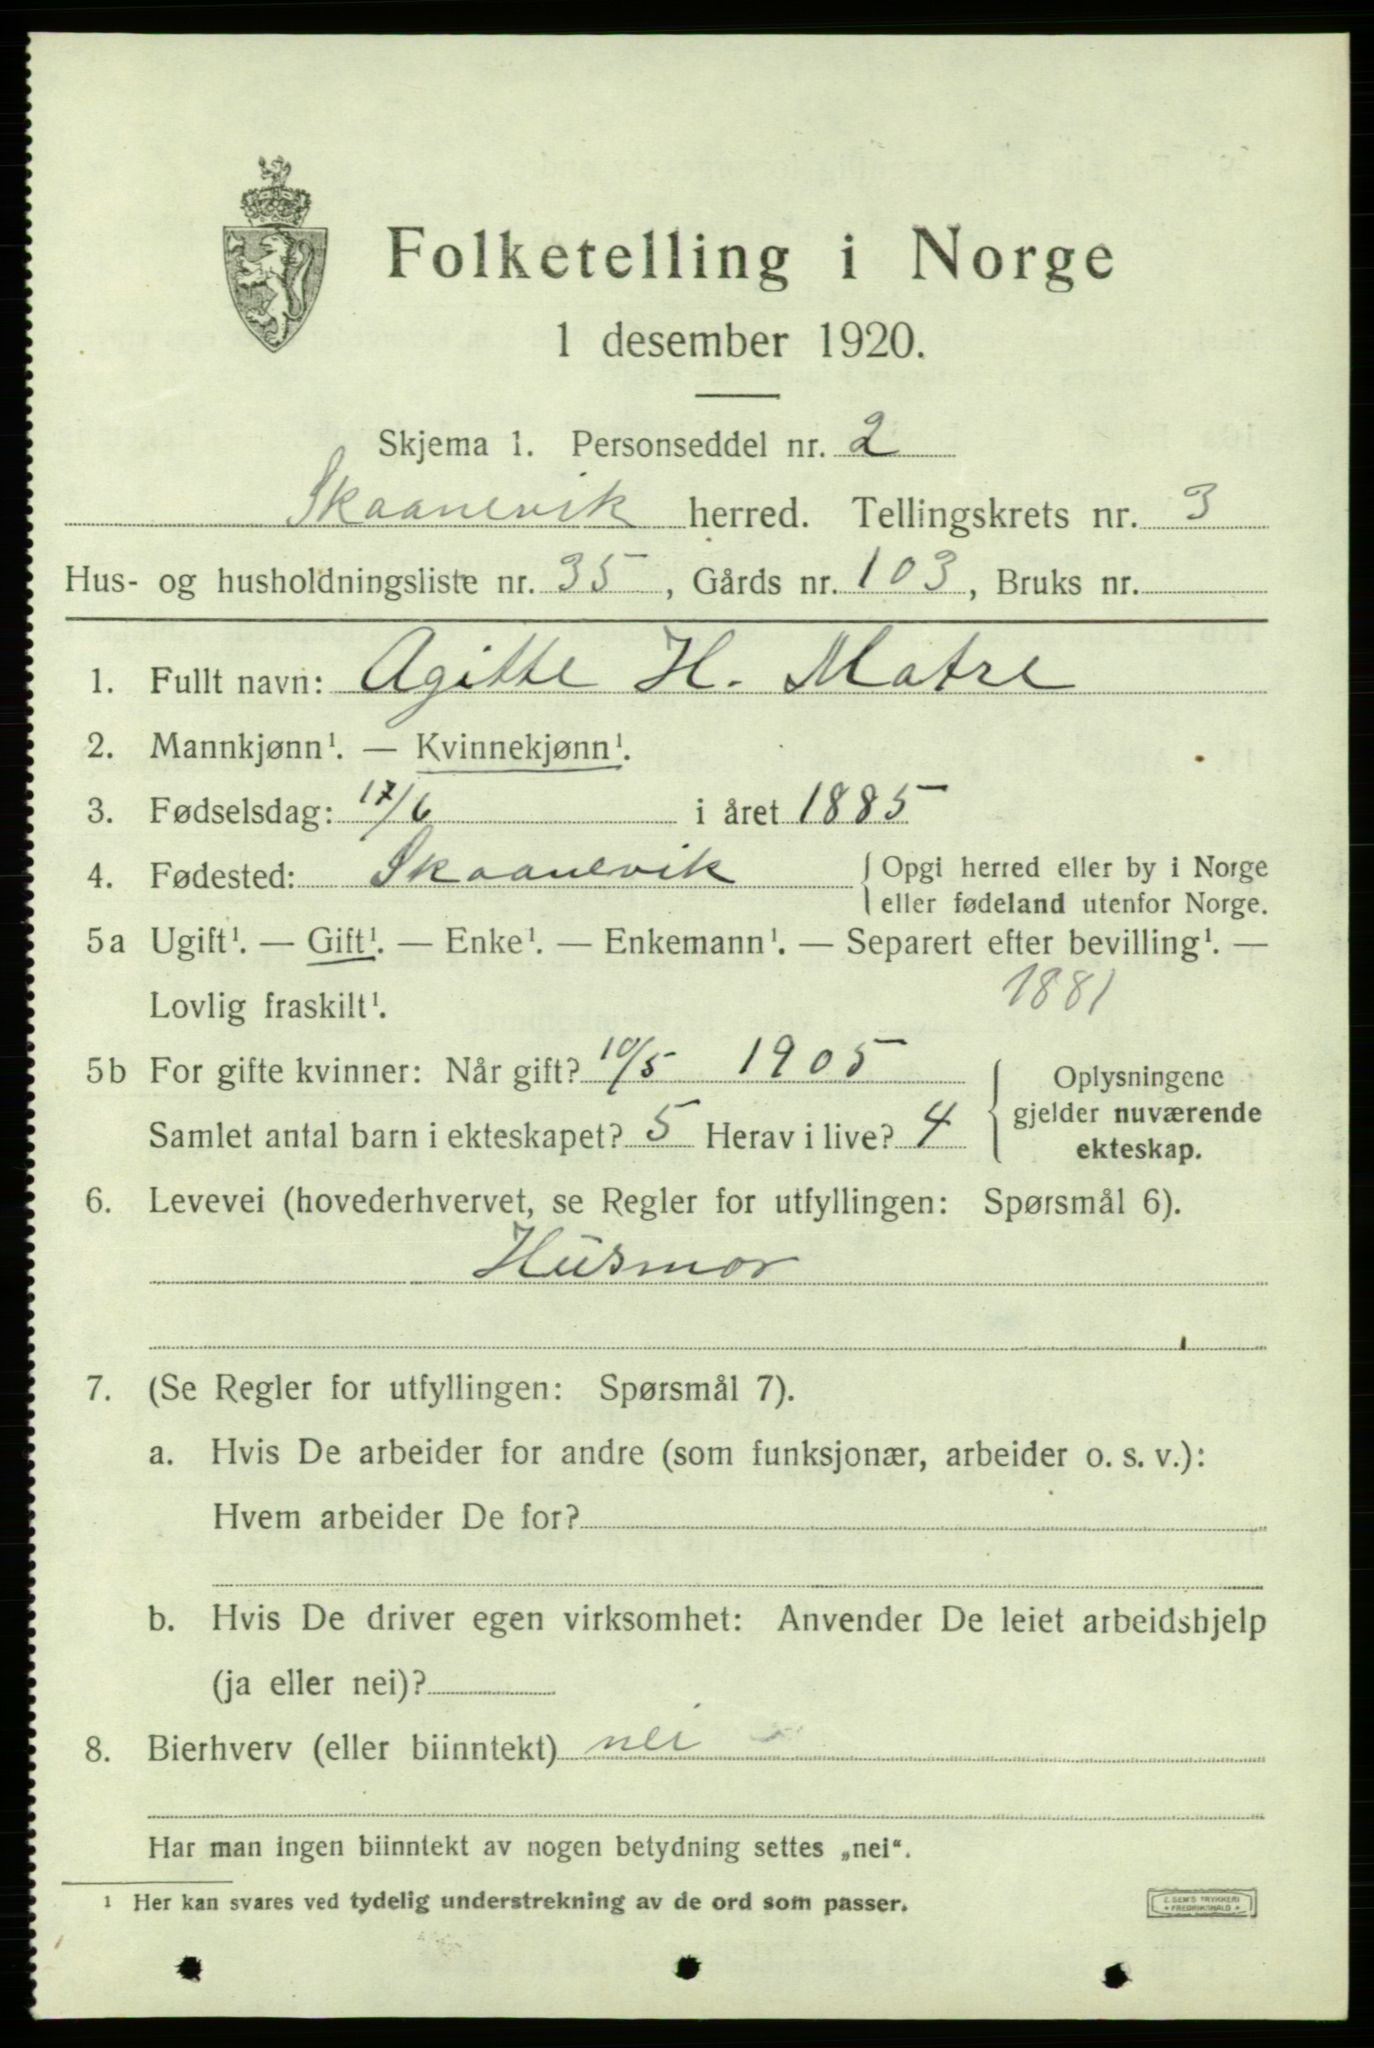 Folketelling i Norge
1 desember 1920.
Skjema 1. Personseddel nr. 2
Skaanevik herred. Tellingskrets nr. 3
Hus- og husholdningsliste nr. 35, Gårds nr. 103, Bruks nr.
1. Fullt navn: Agitte H. Matre
2. Mannkjønn¹. — Kvinnekjønn¹.
3. Fødselsdag: 17/6 i året 1885
4. Fødested: Skaanevik { Opgi herred eller by i Norge
eller fødeland utenfor Norge.
5a Ugift¹. — Gift¹. — Enke¹. — Enkemann¹. — Separert efter bevilling¹. —
Lovlig fraskilt¹. 1881
5b For gifte kvinner: Når gift? 10/5 1905
Samlet antal barn i ekteskapet? 5 Herav i live? 4
Oplysningene
gjelder nuværende
ekteskap.
6. Levevei (hovederhvervet, se Regler for utfyllingen: Spørsmål 6).
Husmor
7. (Se Regler for utfyllingen: Spørsmål 7).
a. Hvis De arbeider for andre (som funksjonær, arbeider o. s. v.):
Hvem arbeider De for?
b. Hvis De driver egen virksomhet: Anvender De leiet arbeidshjelp
(ja eller nei)?
8. Bierhverv (eller biinntekt) nei
Har man ingen biinntekt av nogen betydning settes „nei“.
¹ Her kan svares ved tydelig understrekning av de ord som passer.
E. SEM'S TRYKKERI
FREDRIKSHALD